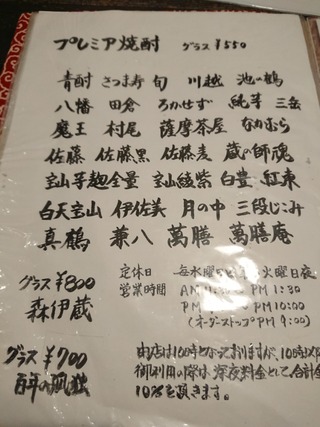 プレミア焼酎 グラス ¥550
青酎 さつま寿 旬 川越 池の鶴
八幡 田倉 ろかせず 純芋 三岳
魔王 村尾 薩摩茶屋 なかむら
佐藤 佐藤黒 佐藤麦 蔵の師魂
宝山芋麹全量 宝山綾紫 白豊 紅東
白天宝山 伊佐美 月の中 三段じこみ
真鶴 兼八 萬膳 萬膳庵
グラス ¥800
森伊蔵
定休日 毎水曜 火曜日夜
営業時間 AM 11:30 〜 PM 1:30
PM 〜 PM 10:00
(オーダーストップ PM 9:00)
グラス ¥700
百年の孤独
当店は10時となっておりますが、10時以
御利用の際は、深夜料金として、合計金
10%を頂きます。